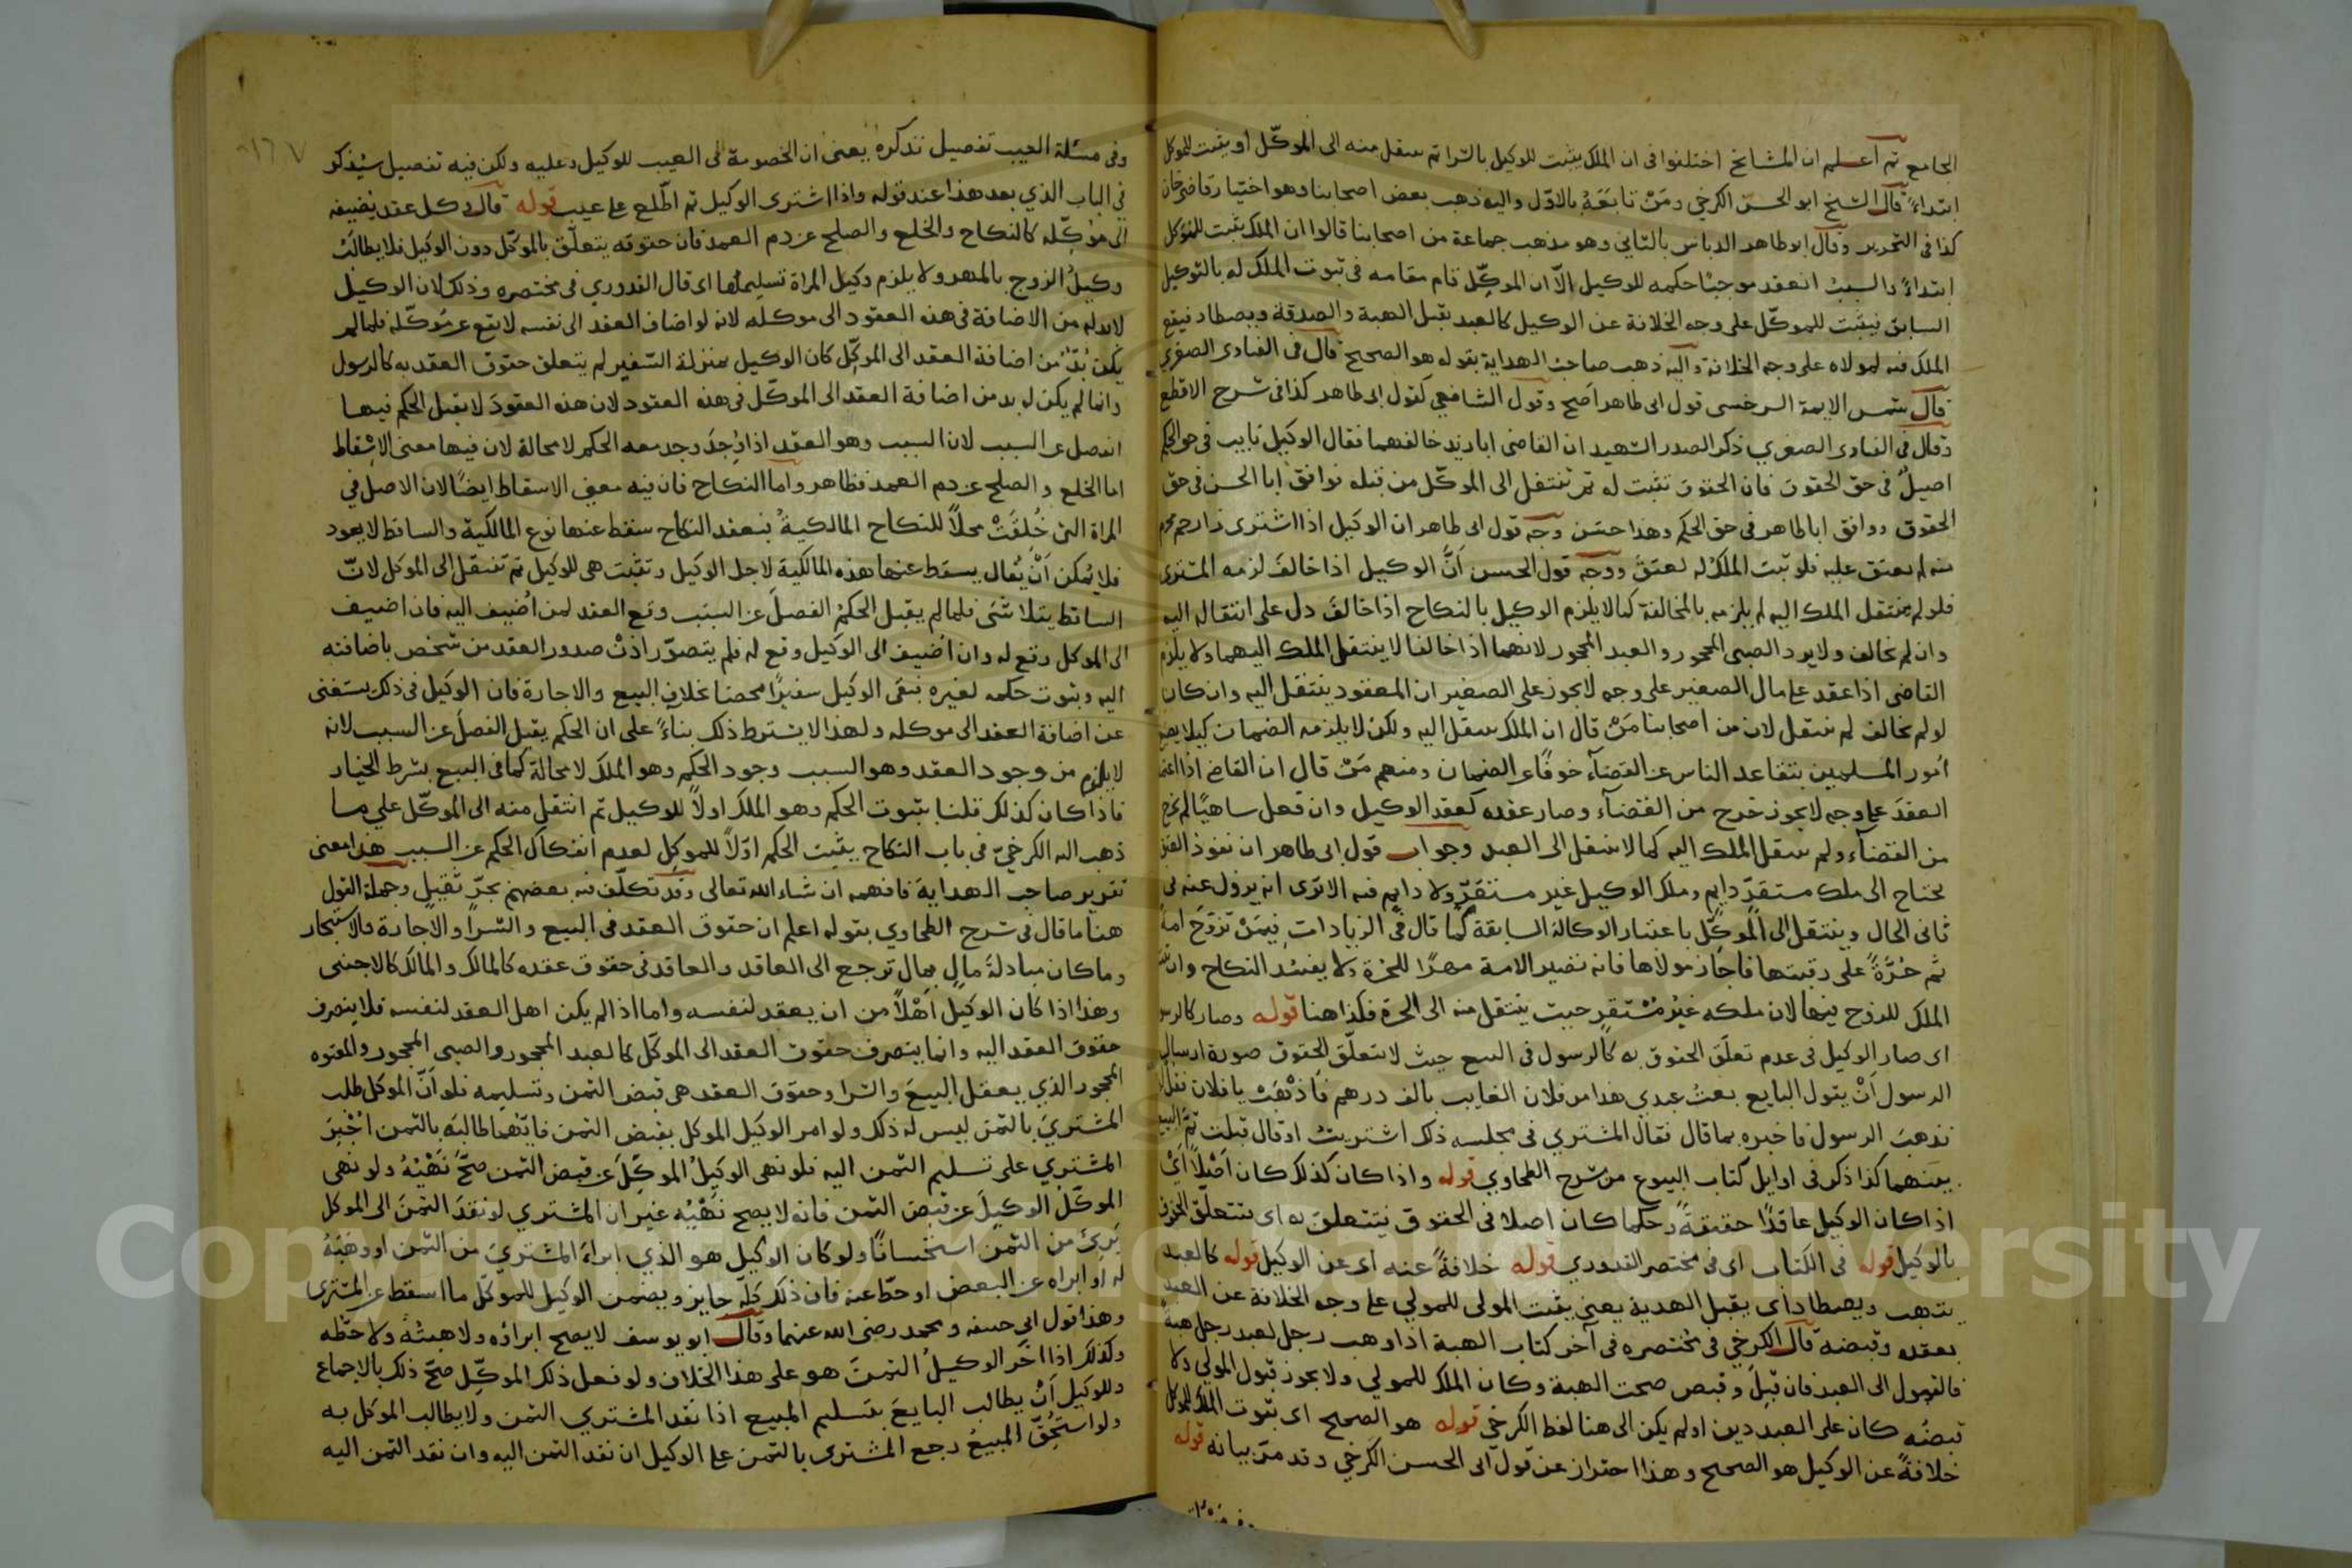 الجامع ثم اعلم ان المشايخ اختلفوا فى ان الملك يثبت للوكيل بالشرا ثم ينتقل منه الى الموكّل او يثبت للموكل
ابتداءً قال الشيخ ابو الحسن الكرخي ومَنْ تابَعَهُ بالاوّل واليه ذهب بعض اصحابنا وهو اختيار قاضى خان
كذا فى التحرير وقال ابو طاهر الدباس بالثاني وهو مذهب جماعة من اصحابنا قالوا ان الملك يثبت للموكل
ابتداءً والسببُ انعقد موجبًا حكمه للوكيل الاّ ان الموكّل قام مقامه فى ثبوت الملك له بالتوكيل
السابق فيثبت للموكّل على وجه الخلافة عن الوكيل كالعبد يقبل الهبة والصدقة ويصطاد فيقع
الملك فيه لمولاه على وجه الخلافة واليه ذهب صاحب الهداية بقوله هو الصحيح قال فى الفتاوى الصغري
قال شمس الايمة السرخسى قول ابى طاهر اَصح وقول الشافعي كقول ابى طاهر كذا فى شرح الاقطع
وقال فى الفتاوى الصغري ذكر الصدر الشهيد ان القاضى ابا زيد خالفهما فقال الوكيل نايب فى حق الحكم
اصيلٌ فى حق الحقوق فان الحقوق تثبت له ثم تنتقل الى الموكّل من قبله فوافق ابا الحسن فى حق
الحقوق ووافق ابا طاهر فى حق الحكم وهذا حسَن وجه قول ابى طاهر ان الوكيل اذا اشترى ذا رحم محرم
منه لم يعتق عليه فلو ثبت الملكُ له لعتقَ ووجه قول الحسن اَنَّ الوكيل اذا خالفَ لزمه المشترى
فلو لم ينتقل الملك اليه لم يلزمه بالمخالفة كما لا يلزم الوكيل بالنكاح اذا خالفَ دل على انتقاله اليه
وان لم يخالف ولا يرد الصبى المحجور والعبد المحجور لانهما اذا خالفا لا ينتقل الملك اليهما ولا يلزم
القاضى اذا عقد على مال الصغير على وجه لا يجوز على الصغير ان المعقود ينتقل اليه وان كان
لو لم يخالف لم ينتقل لان من اصحابنا مَنْ قال ان الملك ينتقل اليه ولكن لا يلزمه الضمان كيلا
اُمور المسلمين بتقاعد الناس عن القضاء خوفًا عن الضمان ومنهم مَنْ قال ان القاضى اذا
العقدَ على وجه لا يجوز خرج من القضاء وصار عقده كعقد الوكيل وان فعل ساهيًا لم يخرج
من القضاء ولم ينتقل الملك اليه كما لا ينتقل الى العبد وجواب قول ابى طاهر ان نفوذ العتق
يحتاج الى ملك مستقرّ دايم وملك الوكيل غير مستقرّ ولا دايم فيه الا ترى انه يزول عنه فى
ثانى الحال وينتقل الى الموكّل باعتبار الوكالة السابقة كما قال فى الزيادات فيمَنْ تزوّجَ امةً
ثم حُرَّةً على رقبتها فاجاز مولاها فانه تصير الامة مهرًا للحُرة ولا يفسُد النكاح وان
الملك للزوج فيها لان ملكه غيْرُ مُسْتقرٍ حيث ينتقل منه الى الحرة فكذا هنا قوله وصار كالرسول
اى صار الوكيل فى عدم تعلّق الحقوق به كالرسول فى البيع حيث لا تتعلّق الحقوق صورة ارسال
الرسول اَنْ يقول البايع بعتُ عبدى هذا من فلان الغايب بالف درهم فاذْهَبْ يا فلان
فذهبَ الرسول فاخبره بما قال فقال المشتري فى مجلسه ذلك اشتريتُ او قال قبلت تمّ البيع
بينهما كذا ذكر فى اوايل كتاب البيوع من شرح الطحاوي قوله واذا كان كذلك كان اَصْلًا اَىْ
اذا كان الوكيل عاقدًا حقيقةً وحكما كان اصلا فى الحقوق فيتعلق به اى تتعلق الحقوق
بالوكيل قوله فى الكتاب اى فى مختصر القدوري قوله خلافةً عنه اى عن الوكيل قوله كالعبد
يتهب ويصطاد اى يقبل الهدية يعنى يثبت المولى للمولي على وجه الخلافة عن العبد
بعقده وقبضه قال الكرخي فى مختصره فى آخر كتاب الهبة اذا وهب رجل لعبد رجل هبة
فالقبول الى العبد فان قبِلَ وقبض صحت الهبة وكان الملك للمولي ولا يجوز قبول المولي ولا
قبضُه كان على العبد دين او لم يكن الى هنا لفظ الكرخي قوله هو الصحيح اى ثبوت الملك للموكل
خلافةً عن الوكيل هو الصحيح وهذا احتراز عن قول ابى الحسن الكرخي وقد مرّ بيانه قوله
١٦٧
وفى مسئلة العيب تفصيل نذكره يعنى ان الخصومة فى العيب للوكيل وعليه ولكن فيه تفصيل سيُذكر
في الباب الذي بعد هذا عند قوله واذا اشترى الوكيل ثم اطّلع على عيب قوله قال وكل عقد يضيفه
الى موكّله كالنكاح والخلع والصلح عن دم العمد فان حقوقه يتعلّق بالموكّل دون الوكيل فلا يطالَبُ
وكيلُ الزوج بالمهر ولا يلزم وكيل المراة تسليمُها اى قال القدوري فى مختصره وذلك لان الوكيل
لا بد له من الاضافة فى هذه العقود الى موكله لانه لو اضاف العقد الى نفسه لا يقع عن مُوكّله فلما لم
يكن بُدٌّ من اضافة العقد الى الموكّل كان الوكيل بمنزلة السّفير لم يتعلق حقوق العقد به كالرسول
وانما لم يكن له بد من اضافة العقد الى الموكّل فى هذه العقود لان هذه العقودَ لا يقبل الحكم فيها
انفصل عن السبب لان السبب وهو العقد اذا وُجِدَ وجد معه الحكم لا محالة لان فيها معنى الاسْقاط
اما الخلع والصلح عن دم العمد فظاهر واما النكاح فان فيه معنى الاسقاط ايضًا لان الاصل فى
المراة التى خُلقَتْ محلاً للنكاح المالكيةُ فبعقد النكاح سقط عنها نوع المالكية والساقط لا يعود
فلا يمكن اَنْ يُقال يسقط عنها هذه المالكية لاجل الوكيل وتثبت هى للوكيل ثم تنتقل الى الموكل لانّ
الساقط يتلاشى فلما لم يقبل الحكمُ الفصلَ عن السبب وقع العقد لمن اُضيف اليه فان اضيف
الى الموكل وقع له وان اُضيف الى الوكيل وقع له فلم يتصوّر اذنْ صدور العقد من شخص باضافته
اليه وثبوت حكمه لغيره فبقى الوكيل سفيرًا محضا بخلاف البيع والاجارة فان الوكيل فى ذلك يستغنى
عن اضافة العقد الى موكله ولهذا لا يشترط ذلك بناءً على ان الحكم يقبل الفصلَ عن السبب لانه
لا يلزم من وجود العقد وهو السبب وجود الحكم وهو الملك لا محالة كما فى البيع بشرط الخيار
فاذا كان كذلك قلنا بثبوت الحكم وهو الملك اولاً للوكيل ثم انتقل منه الى الموكّل على ما
ذهب اليه الكرخيّ فى باب النكاح يثبت الحكم اوّلاً للموكل لعدم انفكاك الحكم عن السبب هذا معنى
تقرير صاحب الهداية فافهمه ان شاء الله تعالى وقد تكلّف فيه بعضهم بجرّ ثقيلٍ وجملة القول
هنا ما قال فى شرح الطحاوي بقوله اعلم ان حقوق العقد فى البيع والشرا والاجارة والاستيجار
وما كان مبادلةَ مالٍ بمالٍ ترجع الى العاقد والعاقد فى حقوق عقده كالمالك والمالك كالاجنبى
وهذا اذا كان الوكيل اَهْلاً من ان يعقد لنفسه واما اذا لم يكن اهل العقد لنفسه فلا ينصرف
حقوق العقد اليه وانما ينصرف حقوق العقد الى الموكّل كالعبد المحجور والصبى المحجور والمعتوه
المحجور الذي يعقل البيعَ والشرا وحقوق العقد هى قبض الثمن وتسليمه فلو اَنّ الموكل طلب
المشتريَ بالثمن ليس له ذلك ولو امر الوكيل الموكل بقبض الثمن فايّهما طالبَه بالثمن اُجْبِرَ
المشتري على تسليم الثمن اليه فلو نهى الوكيلُ الموكّلَ عن قبض الثمن صحّ نَهْيُهُ ولو نهى
الموكّلُ الوكيلَ عن قبض الثمن فانه لا يصح نَهْيُه غير ان المشتري لو نقدَ الثمنَ الى الموكل
بَرِئ من الثمن استحْسانًا ولو كان الوكيل هو الذي ابراءَ المشتريَ من الثمن او وهَبَهُ
له او ابراه عن البعض او حطّ عنه فان ذلك كلّه جايز ويضمن الوكيل للموكّل ما اسقط عن المشترى
وهذا قول ابى حنيفه ومحمد رضى الله عنهما وقال ابو يوسف لا يصح ابراؤه ولا هبتُهُ ولا حطّه
وكذلك اذا اخّر الوكيلُ الثمنَ هو على هذا الخلاف ولو فعل ذلك الموكّل صحّ ذلك بالاجماع
وللوكيل اَنْ يطالب البايعَ بتسليم المبيع اذا نقد المشتري الثمن ولا يطالب الموكل به
ولو استُحِقّ المبيعُ رجع المشترى بالثمن على الوكيل ان نقد الثمن اليه وان نقد الثمن اليه
Copyright © King Saud University